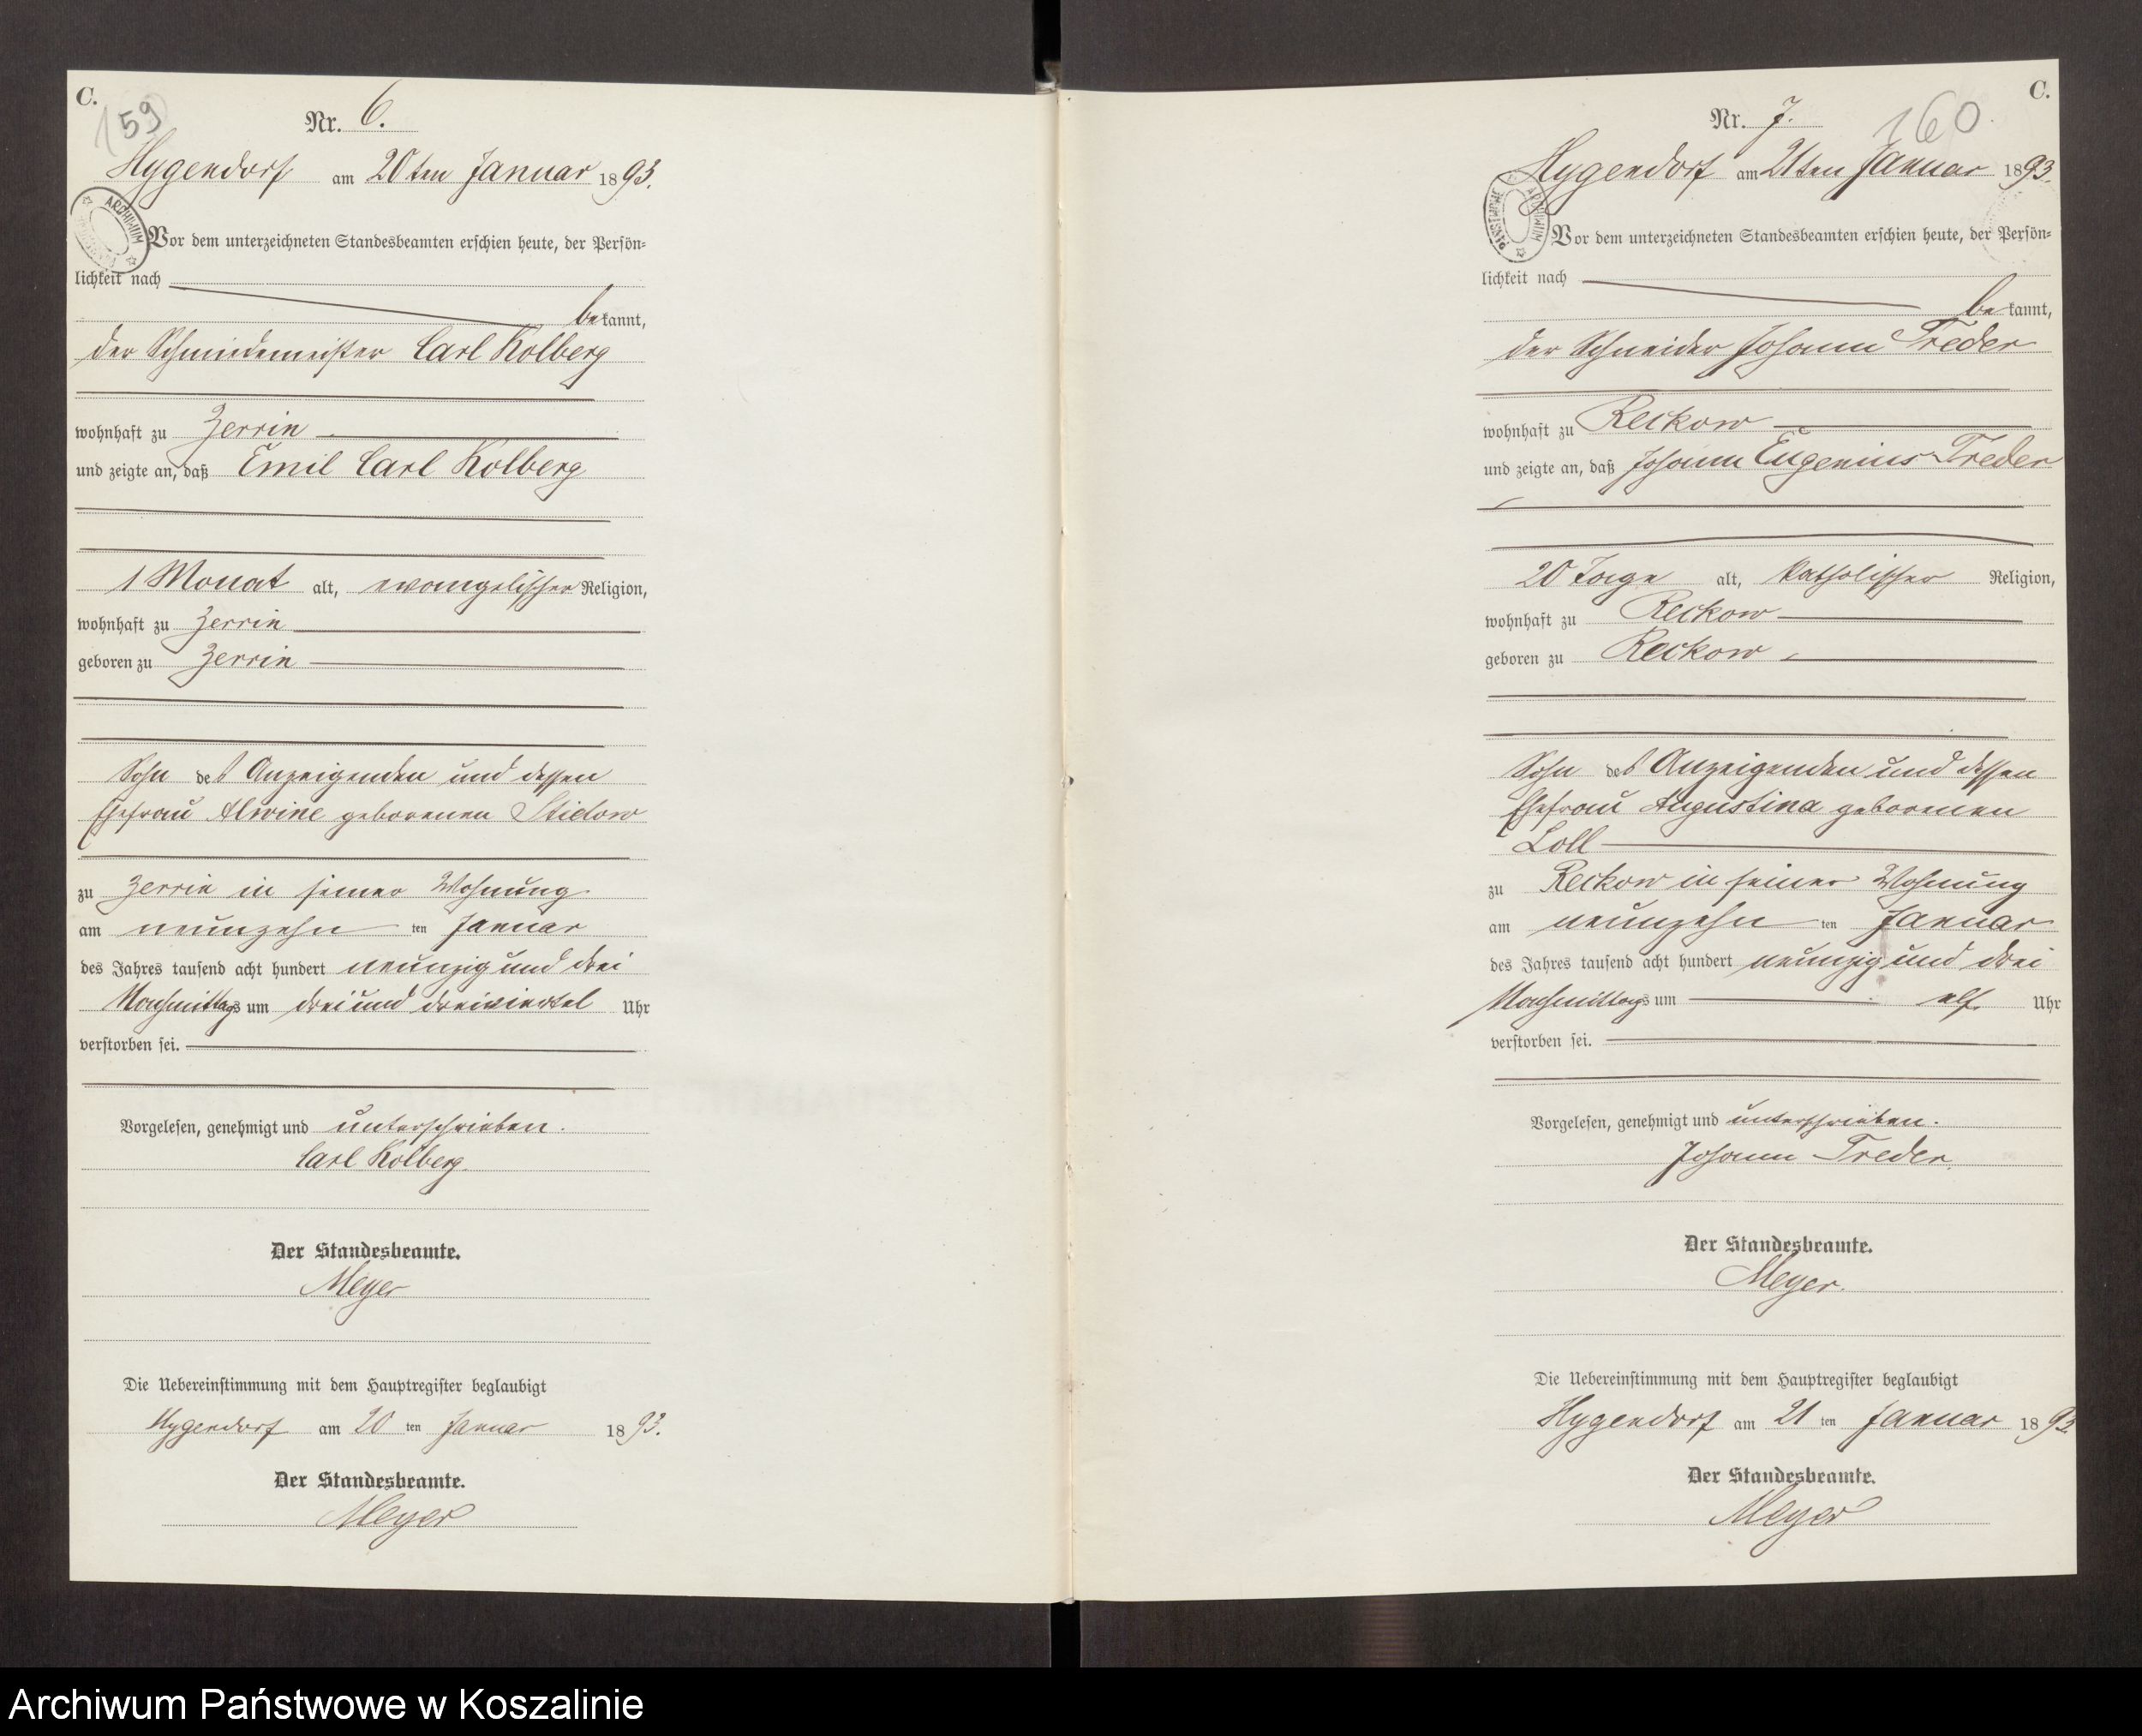 C.
159
Nr. 6.
Hygendorf am 20ten Januar 1893.
Vor dem unterzeichneten Standesbeamten erschien heute, der Persön=
lichkeit nach
bekannt,
der Schmiedemeister Carl Kolberg
wohnhaft zu Zerrin
und zeigte an, daß Emil Carl Kolberg
1 Monat alt, evangelischer Religion,
wohnhaft zu Zerrin
geboren zu Zerrin
Sohn des Anzeigenden und dessen
Ehefrau Alwine geborenen
zu Zerrin in seiner Wohnung
am neunzehn ten Januar
des Jahres tausend acht hundert neunzig und drei
Nachmittags um drei und dreiviertel Uhr
verstorben sei.
Vorgelesen, genehmigt und unterschrieben.
Carl Kolberg.
Der Standesbeamte.
Meyer
Die Uebereinstimmung mit dem Hauptregister beglaubigt
Hygendorf am 20 ten Januar 1893.
Der Standesbeamte.
Meyer
C.
160
Nr. 7.
Hygendorf am 21ten Januar 1893.
ARCHIWUM PAŃSTWOWE
Vor dem unterzeichneten Standesbeamten erschien heute, der Persön=
lichkeit nach
bekannt,
der Schneider Johann Treder
wohnhaft zu Reckow
und zeigte an, daß Johann Eugenius Treder
20 Tage alt, katholischer Religion,
wohnhaft zu Reckow
geboren zu Reckow
Sohn des Anzeigenden und dessen
Ehefrau Augustina geborenen
Loll
zu Reckow in seiner Wohnung
am neunzehn ten Januar
des Jahres tausend acht hundert neunzig und drei
Nachmittags um elf Uhr
verstorben sei.
Vorgelesen, genehmigt und unterschrieben.
Johann Treder.
Der Standesbeamte.
Meyer.
Die Uebereinstimmung mit dem Hauptregister beglaubigt
Hygendorf am 21 ten Januar 1893.
Der Standesbeamte.
Meyer
Archiwum Państwowe w Koszalinie